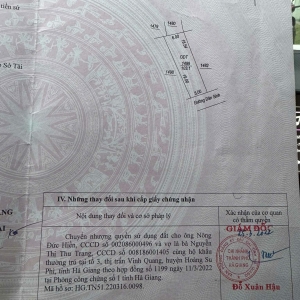 tiền sử
Sơ Tài
1479
1480
6.00
ODT
1498
Đường Dân Sinh
IV. Những thay đổi sau khi cấp giấy chứng nhận
Nội dung thay đổi và cơ sở pháp lý
Xác nhận của cơ quan
có thẩm quyền
Chuyển nhượng quyền sử dụng đất cho ông Nông
Đức Hiền, CCCD số 002086000496 và vợ là bà Nguyễn
Thị Thu Trang, CCCD số 008186001405 cùng hộ khẩu
thường trú tại tổ 3, thị trấn Vinh Quang, huyện Hoàng Su
Phì, tỉnh Hà Giang theo hợp đồng số 1199 ngày 11/3/2022
tại Phòng công chứng số 1 tỉnh Hà Giang.
Mã hồ sơ: HG.TN51.220316.0098.
GIÁM ĐỐC
Đỗ Xuân Hậu